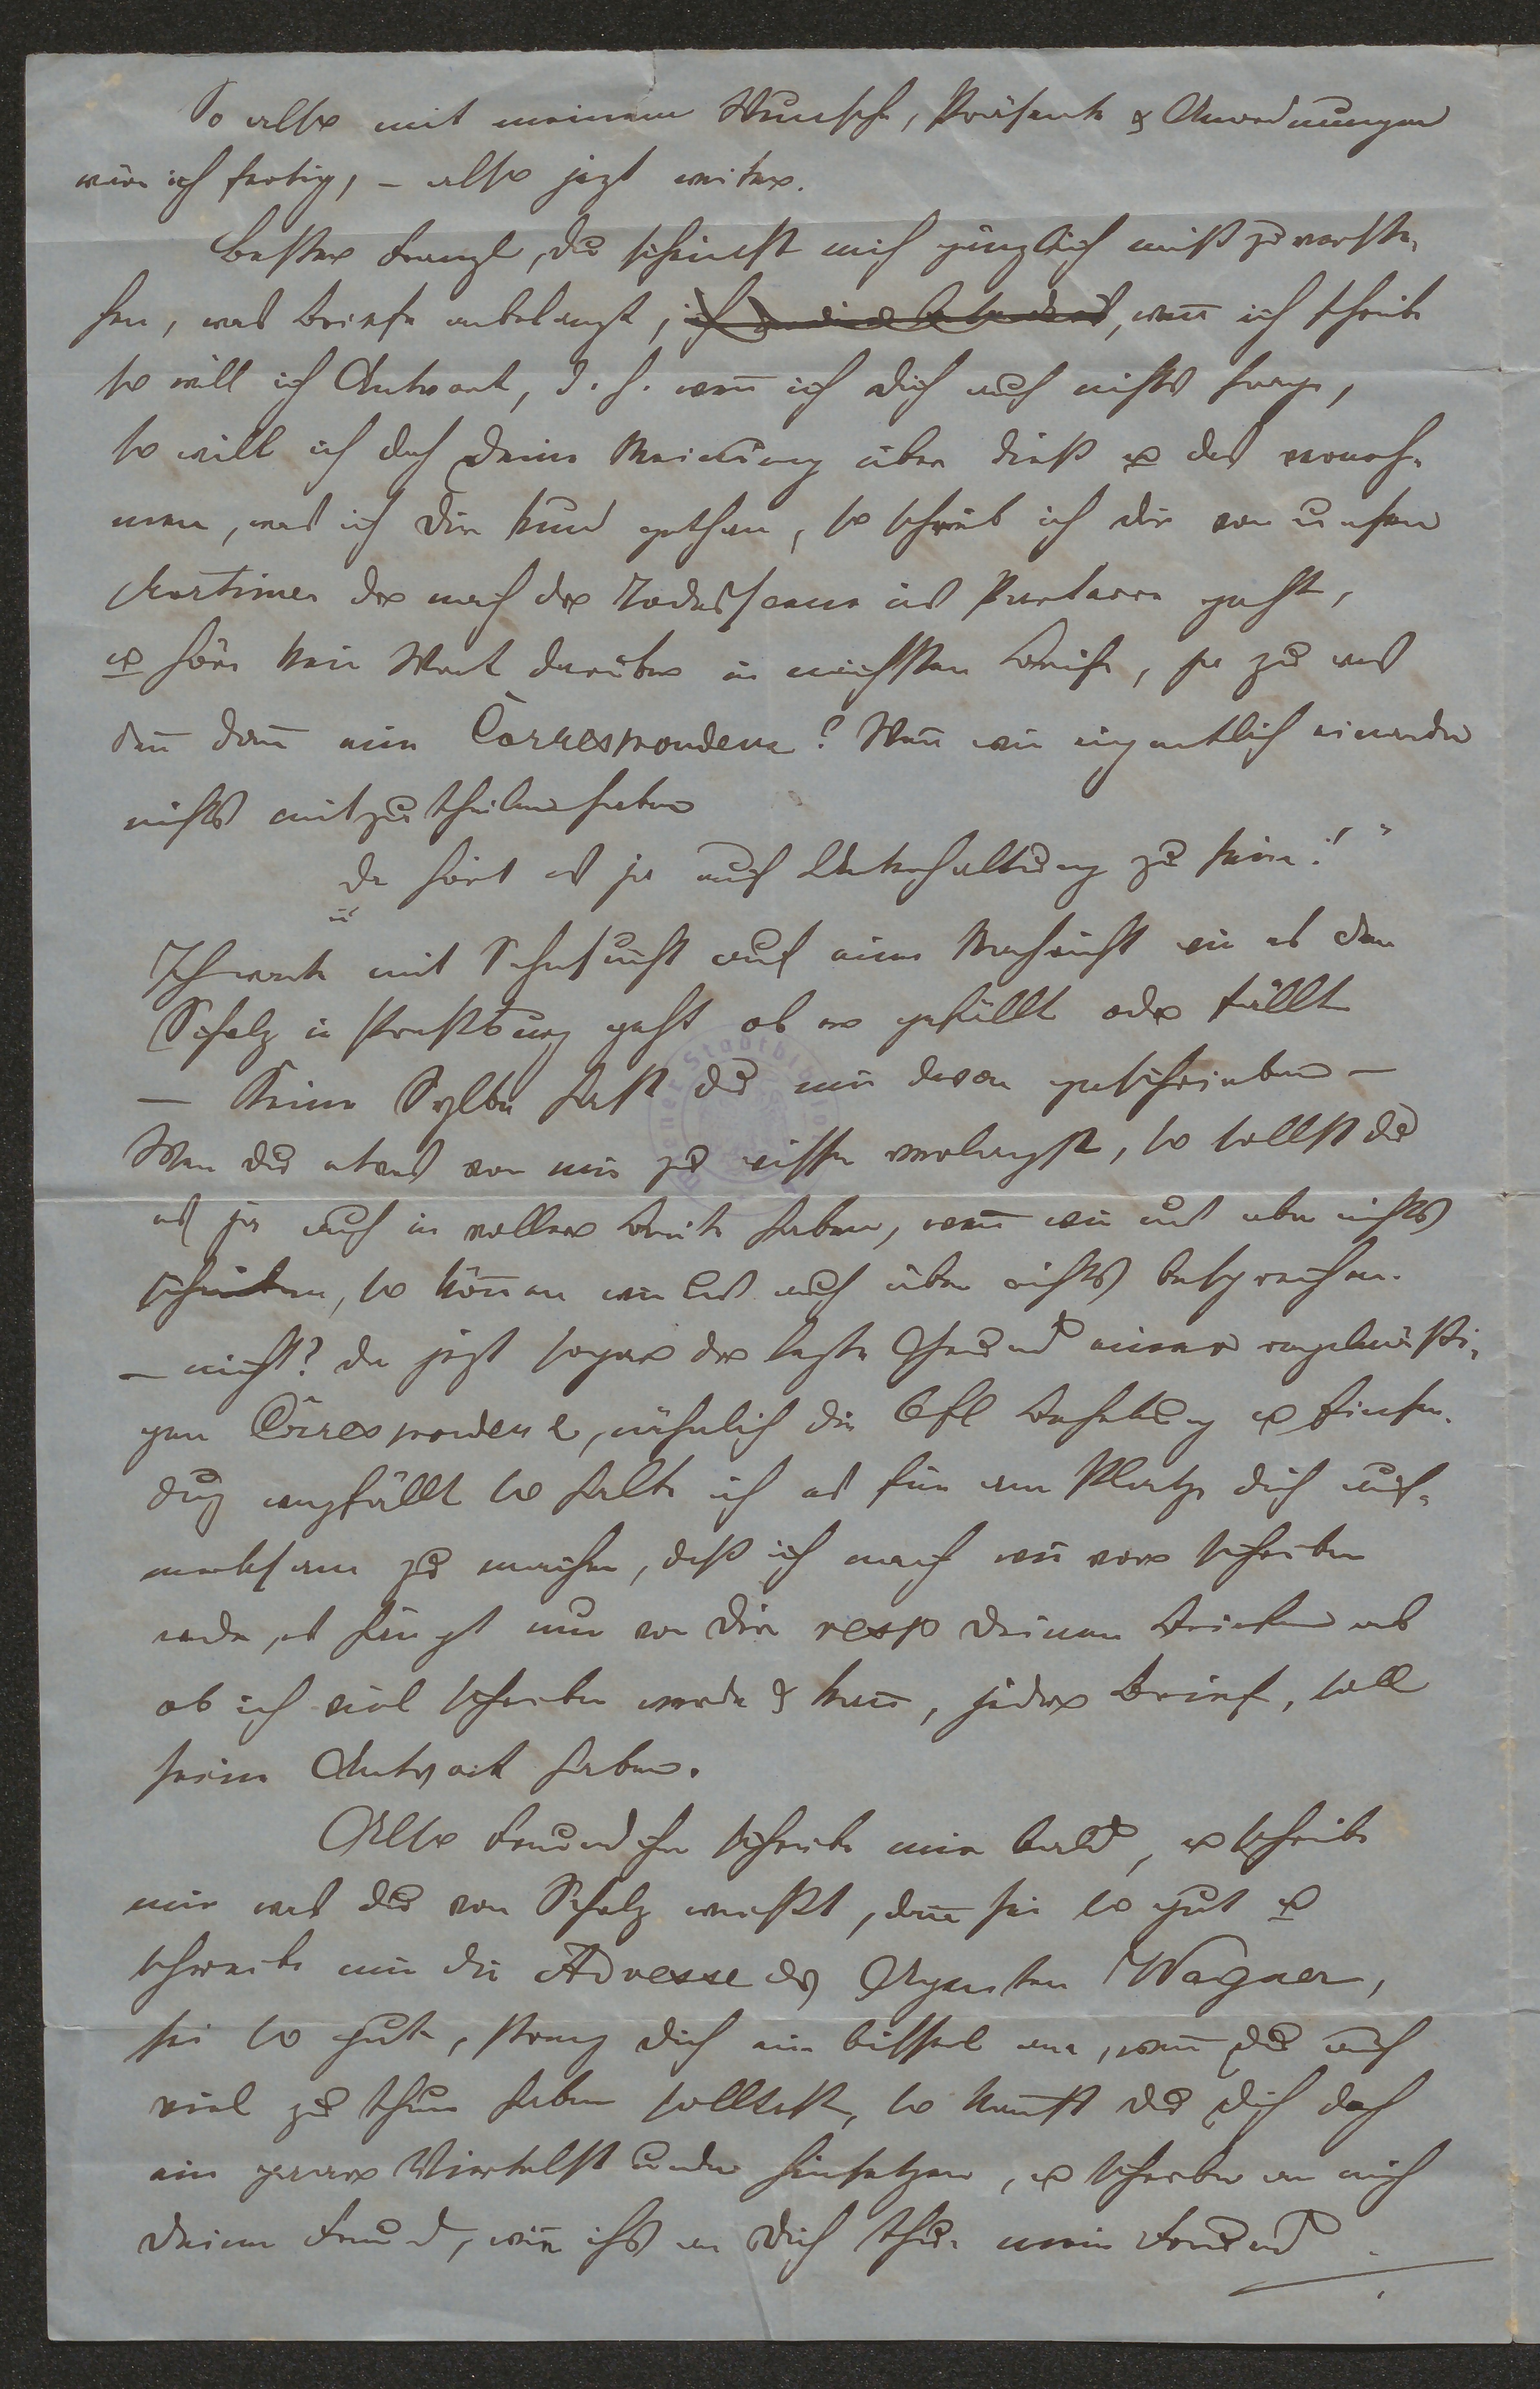 So also mit meinem Wunsche, Präsente & Anordnungen
wär ich fertig, – also jezt weiter.
Bester Franzl, du scheinst mich gänzlich miß zu verste-
hen, was Briefe anbelangt, ich, weñ ich schreibe
so will ich Antwort, d. h. weñ ich dich auch nichts frage,
so will ich doch deine Meinung über dieß u das verneh-
men, was ich dir kund gethan, so schrieb ich dir von unsern
Mortimer der nach der Todesscene ins Parterre geht,
u höre kein Wort darüber in nächsten Briefe, ja zu was
deñ dañ eine Correspondenz? Weñ wir eigentlich einander
nichts mitzutheilen haben
„da hört es ja auf Unterhaltung zu sein!"
Ich warte mit Sehnsucht auf eine Nachricht wie es dem
Scholz in Preßburg geht ob er gefällt oder fällt
– Keine Sylbe hast du mir davon geschrieben –
Wen du etwas von mir zu wissen verlangst, so sollst du
es ja auch in voller Breite haben, weñ wir uns aber nichts
schreiben, so köñen wir uns auch über nichts besprechen.
– nicht? da jezt sogar der lezte Grund einer regelmäßi-
gen Correspondenz, nähmlich die Behebung u Einsen-
dug wegfällt so halte ich es für am Platze dich auf-
merksam zu machen, daß ich nach wie vor schreiben
werde, es hängt nur von dir resp deinen Briefen ab
ob ich viel schreiben werde & kañ, jeder Brief, soll
seine Antwort haben.
Also Freundchen schreibe mir bald, u schreibe
mir was du von Scholz weißt, dañ sei so gut u
schreibe mir die Adresse des Agenten Wagner,
sei so gut, streng dich ein bissel an, weñ du auch
viel zu thun haben solltest, so kañst du dich doch
ein paar Viertelstunden hinsetzen, u schreiben an mich
deinen Freund, wie ichs an dich thue mein Freund